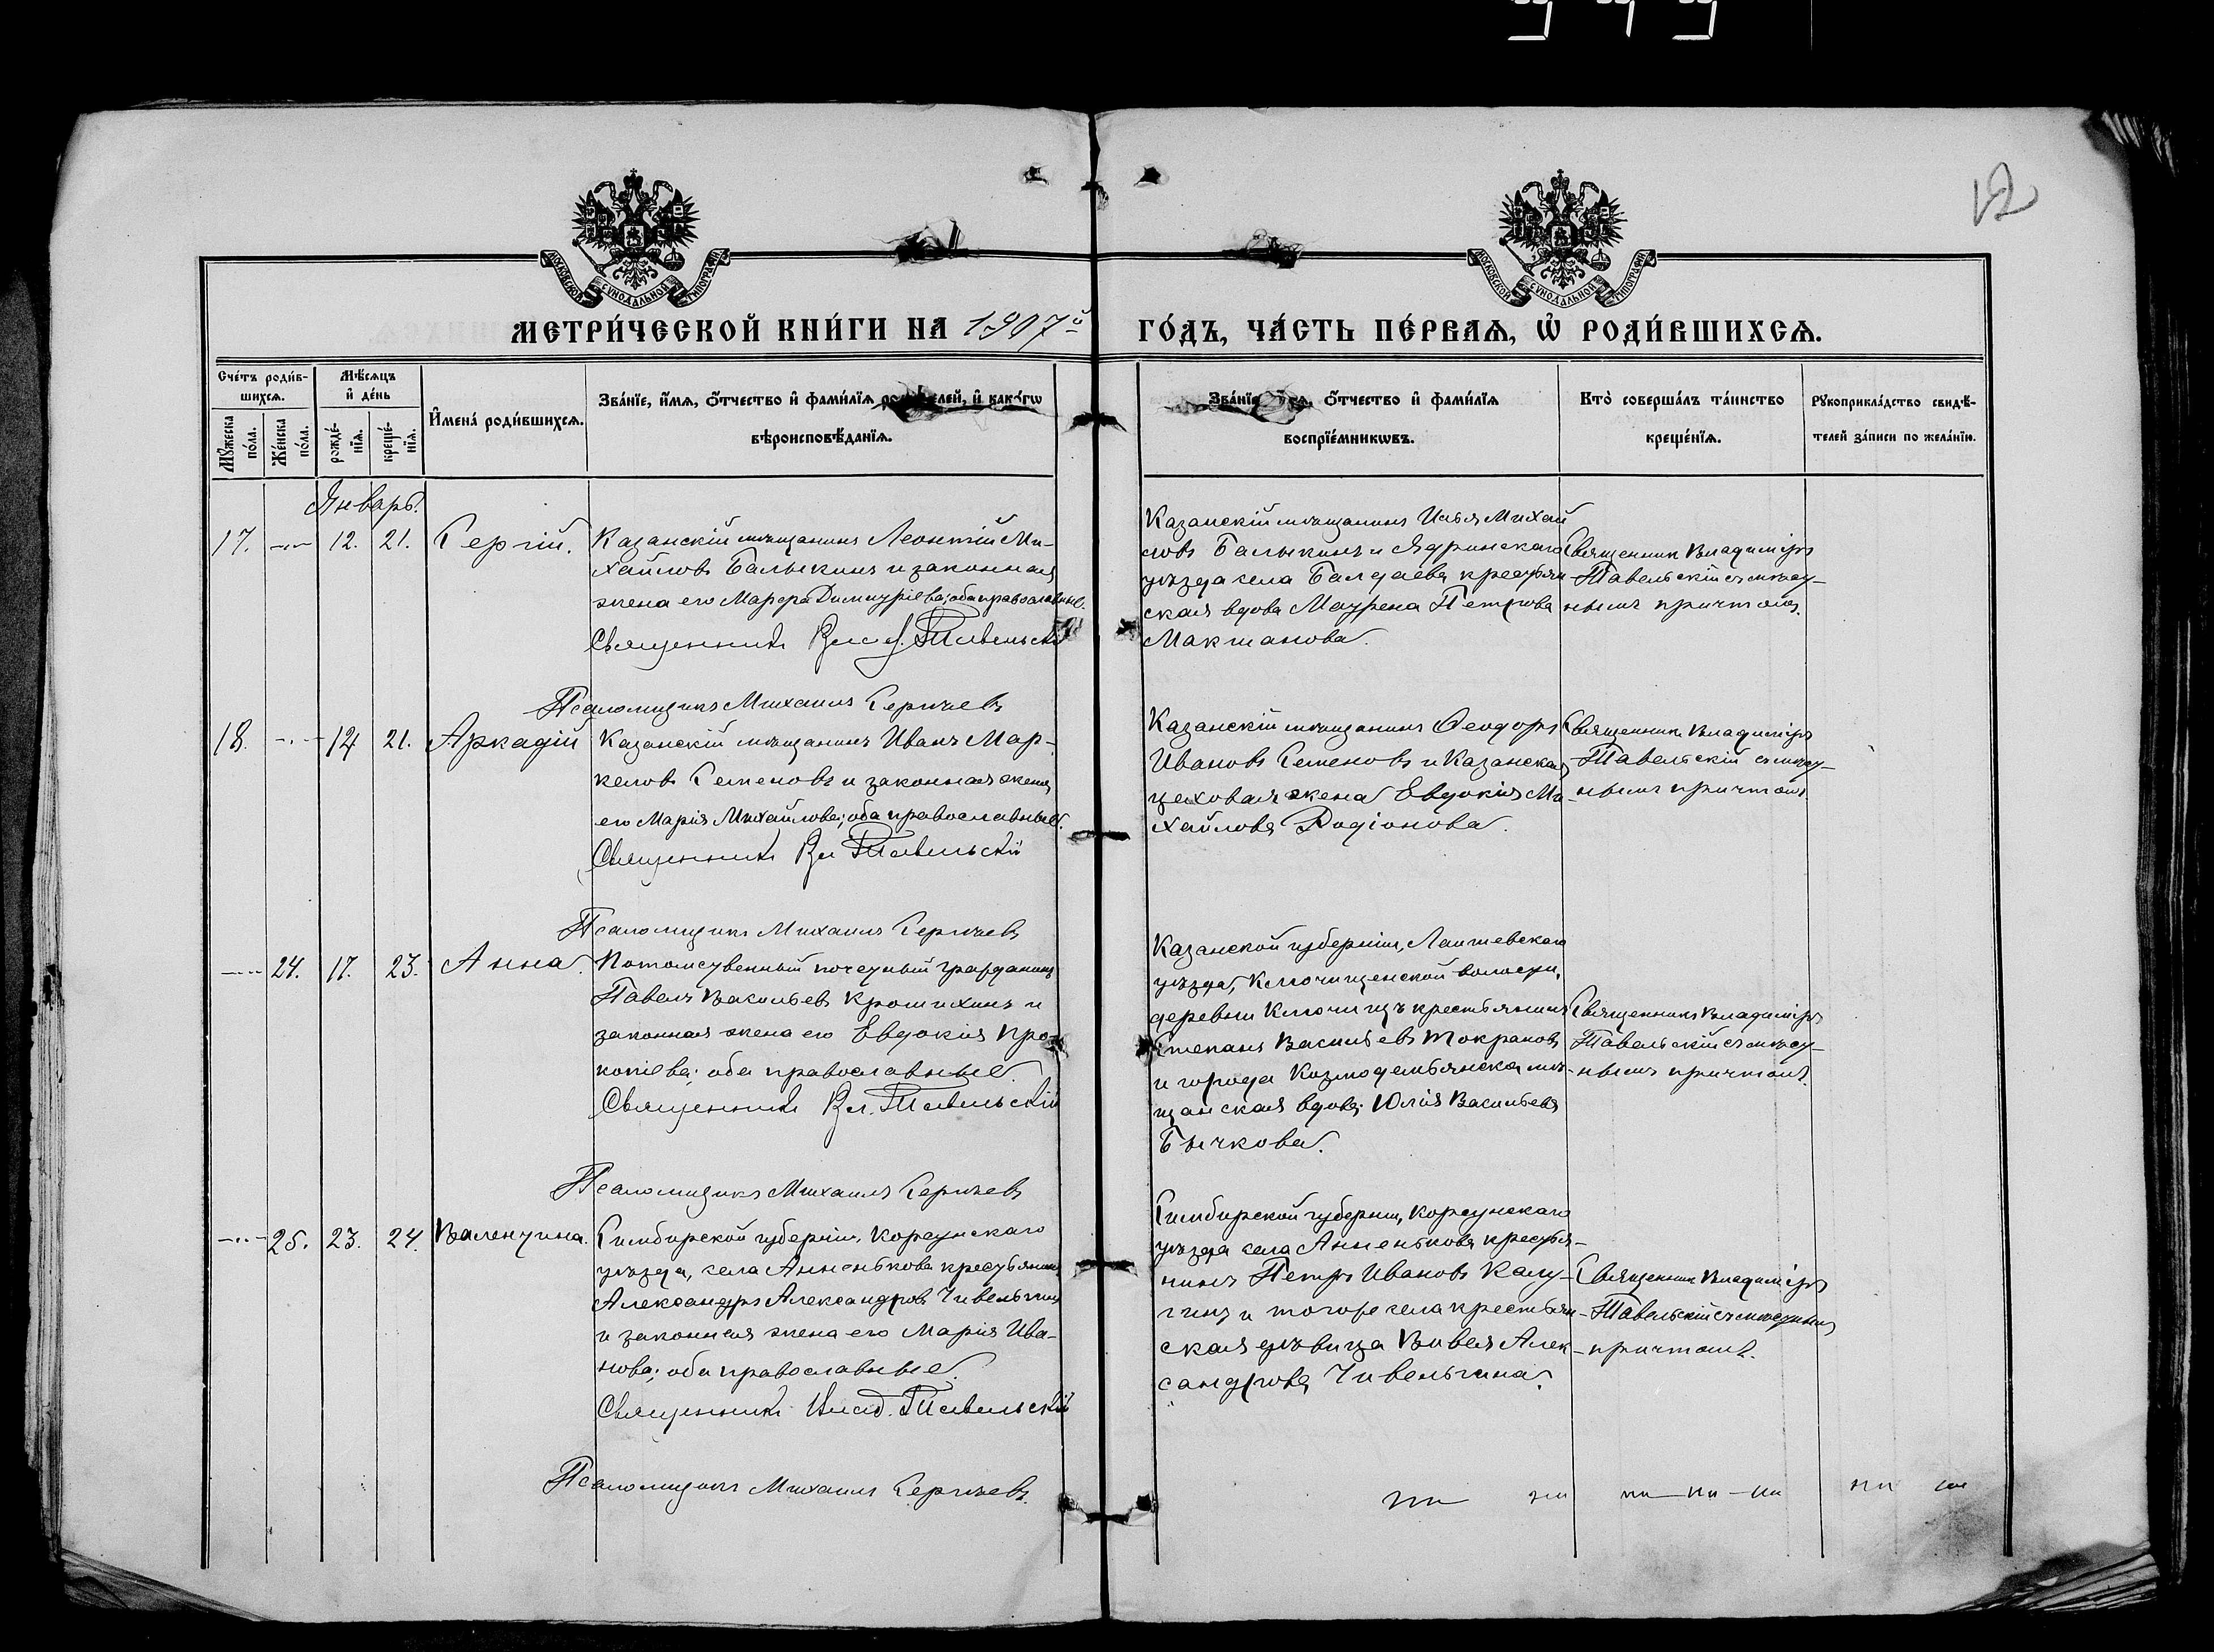 12
МОСКОВСКОЙ СѴНОДАЛЬНОЙ ТИПОГРАФІИ
МОСКОВСКОЙ СѴНОДАЛЬНОЙ ТИПОГРАФІИ
МЕТРИ́ЧЕСКОЙ КНИ́ГИ НА 1907й ГО́ДЪ, ЧА́СТЬ ПЕ́РВАЯ, Ѡ҆ РОДИ́ВШИХСЯ.
Сче́тъ роди́в-
шихся.
Мѣ́сяцъ
и҆ де́нь
Мꙋ́жеска по́ла.
Же́нска по́ла.
рожде́-нїя.
креще́-нїя.
И҆мена́ роди́вшихся.
Зва́нїе, и҆́мя, ѻ҆́тчество и҆ фами́лїя родителей, и҆ како́гѡ
вѣроисповѣ́данїя.
Зва́нїе, ѻ҆́тчество и҆ фами́лїя
воспрїе́мникѡвъ.
Кто̀ соверша́лъ та́инство
креще́нїя.
Рꙋкоприкла́дство свидѣ́-
телей за́писи по жела́нїю.
Январь.
17. 12. 21. Сергій.
Казанскій мѣщанинъ Леонтій Ми-
хайловъ Балыкинъ и законная
жена его Марѳа Димитріева; оба православные.
Священникъ Влад. Тавельскій
Псаломщикъ Михаилъ Сергѣевъ
Казанскій мѣщанинъ Илья Михай
ловъ Балыкинъ и Ядринскаго
уѣзда села Балдаева крестьян
ская вдова Петрова
Макшанова.
Священникъ Владиміръ
Тавельскій съ мѣст-
нымъ причтомъ.
18. 14 21. Аркадій
Казанскій мѣщанинъ Иванъ Мар-
келовъ Семеновъ и законная жена
его Марія Михайлова; оба православные.
Священникъ Вл Тавельскій
Псаломщикъ Михаилъ Сергѣевъ
Казанскій мѣщанинъ Ѳеодоръ
Ивановъ Семеновъ и Казанская
цеховая жена Евдокія Ми-
хайлова Родіонова.
Священникъ Владиміръ
Тавельскій съ мѣст-
нымъ причтомъ.
24. 17. 23. Анна.
Потомственный почетный гражданинъ
Павелъ Васильевъ Кротихинъ и
законная жена его Евдокія Про-
копіева; оба православные.
Священникъ Вл. Тавельскій
Псаломщикъ Михаилъ Сергѣевъ
Казанской губерніи, Лаишевскаго
уѣзда, Ключищенской волости,
деревни Ключищъ крестьянинъ
Степанъ Васильевъ Мокраковъ
и города Козмодемьянска мѣ-
щанская вдова Юлія Васильева
Бычкова.
Священникъ Владиміръ
Тавельскій съ мѣст-
нымъ причтомъ.
25. 23. 24. Валентина.
Симбирской губерніи, Корсунскаго
уѣзда, села Анненкова крестьянинъ
Александръ Александровъ Чивельгинъ
и законная жена его Марія Ива-
нова; оба православные.
Священникъ Влад. Тавельскій
Псаломщикъ Михаилъ Сергѣевъ.
Симбирской губерніи, Корсунскаго
уѣзда села Анненкова крестья-
нинъ Петръ Ивановъ Калу-
гинъ и того же села крестьян-
ская дѣвица Алек-
сандрова Чивельгина.
Священникъ Владиміръ
Тавельскій съ мѣстнымъ
причтомъ.